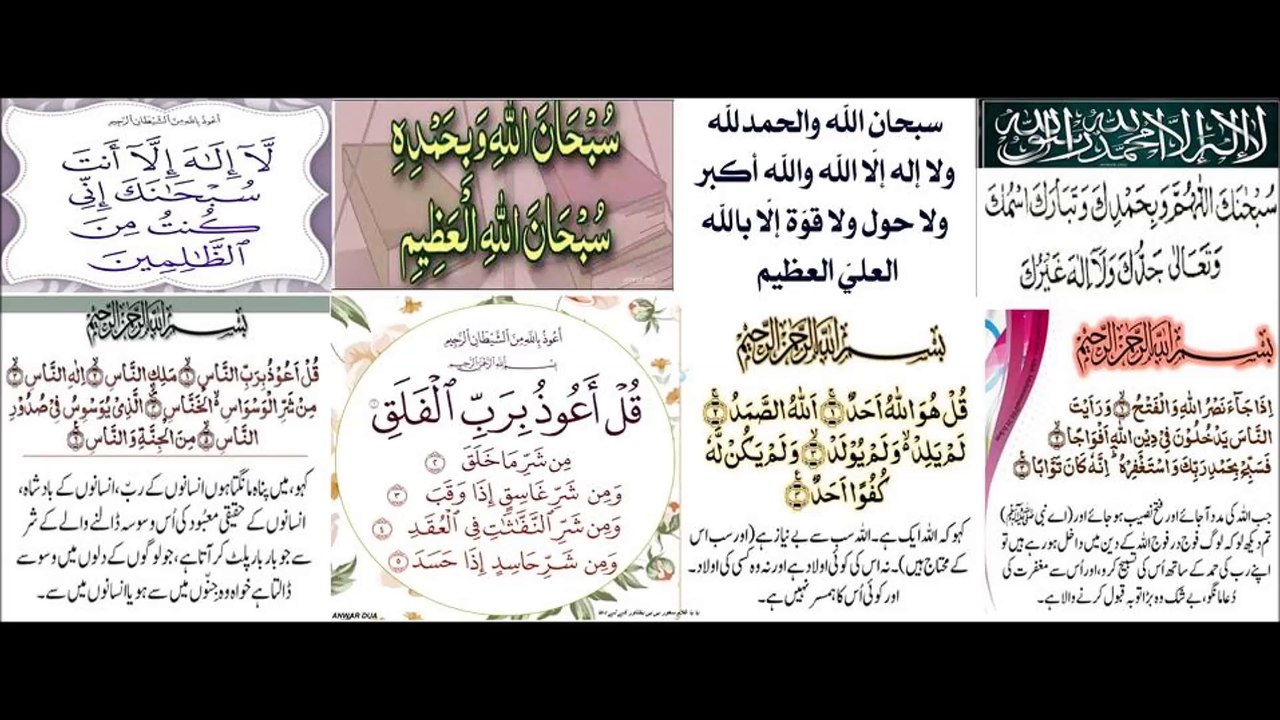 أعوذ بالله من الشيطان الرجيم
لَّآ إِلَـٰهَ إِلَّآ أَنتَ
سُبْحَـٰنَكَ إِنِّي
كُنتُ مِنَ
الظَّـٰلِمِينَ
سُبْحَانَ اللهِ وَبِحَمْدِهِ
سُبْحَانَ اللهِ الْعَظِيمِ
سبحان الله والحمد لله
ولا إله إلّا الله والله أكبر
ولا حول ولا قوّة إلّا بالله
العليّ العظيم
لا إله إلا الله محمد رسول الله
سُبْحٰنَكَ اللّٰهُمَّ وَبِحَمْدِكَ وَتَبَارَكَ اسْمُكَ
وَتَعَالٰى جَدُّكَ وَلَآ اِلٰهَ غَيْرُكَ
بسم الله الرحمن الرحيم
قُلْ اَعُوْذُ بِرَبِّ النَّاسِ ۱ مَلِكِ النَّاسِ ۲ اِلٰهِ النَّاسِ ۳
مِنْ شَرِّ الْوَسْوَاسِ الْخَنَّاسِ ۴ الَّذِىْ يُوَسْوِسُ فِىْ صُدُوْرِ
النَّاسِ ۵ مِنَ الْجِنَّةِ وَالنَّاسِ ۶
کہو، میں پناہ مانگتا ہوں انسانوں کے رب، انسانوں کے بادشاہ،
انسانوں کے حقیقی معبود کی اُس وسوسہ ڈالنے والے کے شر
سے جو بار بار پلٹ کر آتا ہے، جو لوگوں کے دلوں میں وسوسے
ڈالتا ہے خواہ وہ جنّوں میں سے ہو یا انسانوں میں سے۔
أعوذ بالله من الشيطان الرجيم
بسم الله الرحمن الرحيم
قُلْ أَعُوذُ بِرَبِّ الْفَلَقِ ١
مِن شَرِّ مَا خَلَقَ ٢
وَمِن شَرِّ غَاسِقٍ إِذَا وَقَبَ ٣
وَمِن شَرِّ النَّفَّاثَاتِ فِي الْعُقَدِ ٤
وَمِن شَرِّ حَاسِدٍ إِذَا حَسَدَ ٥
ANWAR DUA
بسم الله الرحمن الرحيم
قُلْ هُوَ اللهُ اَحَدٌ ۱ اَللهُ الصَّمَدُ ۲
لَمْ يَلِدْ وَلَمْ يُوْلَدْ ۳ وَلَمْ يَكُنْ لَّهٗ
كُفُوًا اَحَدٌ ۴
کہو کہ اللہ ایک ہے۔ اللہ سب سے بے نیاز ہے (اور سب اس
کے محتاج ہیں)۔ نہ اس کی کوئی اولاد ہے اور نہ وہ کسی کی اولاد۔
اور کوئی اُس کا ہمسر نہیں ہے۔
بسم الله الرحمن الرحيم
اِذَا جَآءَ نَصْرُ اللهِ وَالْفَتْحُ ۱ وَرَاَيْتَ
النَّاسَ يَدْخُلُوْنَ فِىْ دِيْنِ اللهِ اَفْوَاجًا ۲
فَسَبِّحْ بِحَمْدِ رَبِّكَ وَاسْتَغْفِرْهُ اِنَّهٗ كَانَ تَوَّابًا ۳
جب اللہ کی مدد آ جائے اور فتح نصیب ہو جائے اور (اے نبی ﷺ)
تم دیکھ لو کہ لوگ فوج در فوج اللہ کے دین میں داخل ہو رہے ہیں تو
اپنے رب کی حمد کے ساتھ اُس کی تسبیح کرو، اور اُس سے مغفرت کی
دُعا مانگو، بے شک وہ بڑا توبہ قبول کرنے والا ہے۔